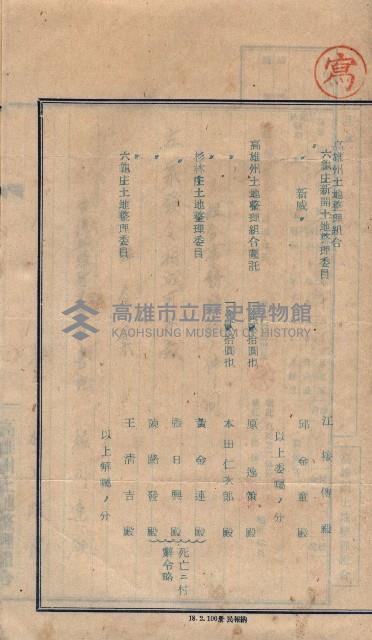 寫
高雄州土地整理組合
六龜庄新開土地整理委員 江接傳殿
〃 新威〃 邱金董殿
以上委囑ノ分
高雄州土地整理組合囑託
拾圓也 原逸策殿
〃 拾圓也 本田仁太郎殿
杉林庄土地整理委員 黃金連殿
〃 張日興殿
〃 陳路發殿
死亡ニ付
辭令略
六龜庄土地整理委員 王清吉殿
以上解囑ノ分
高雄市立歷史博物館
KAOHSIUNG MUSEUM OF HISTORY
18.2.100册 民報納